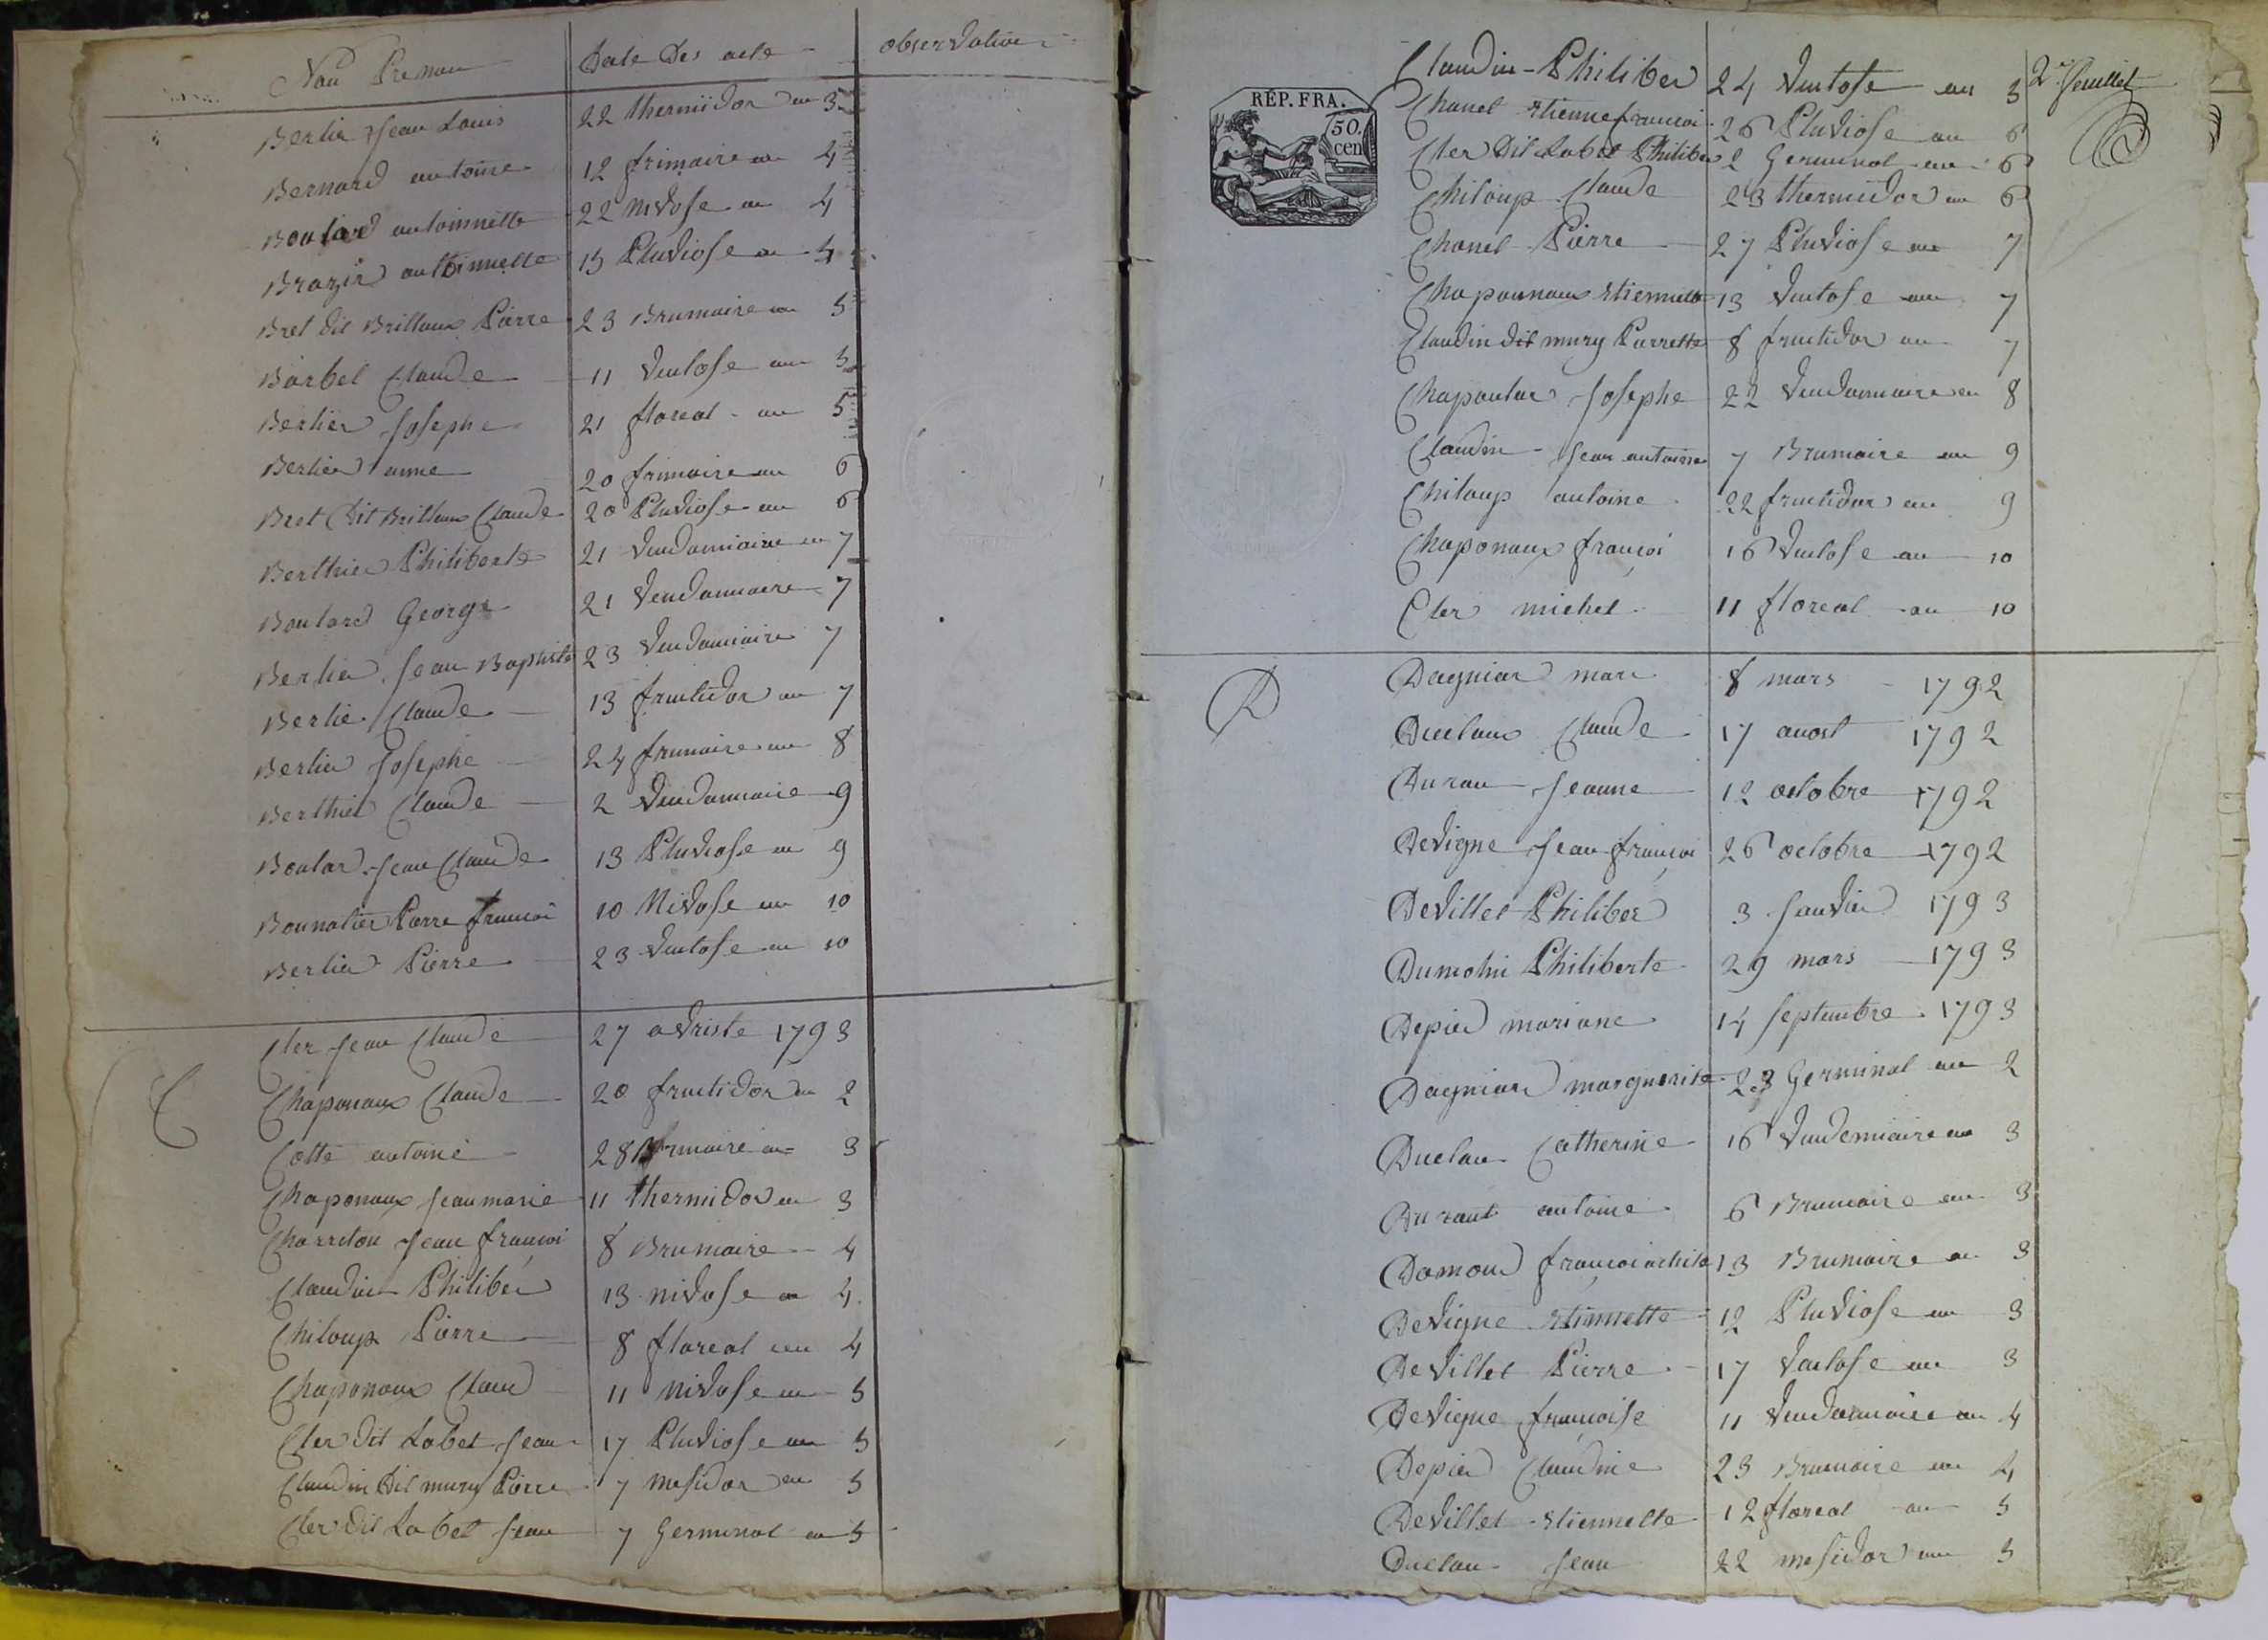 Nom Prenom Date Des acte observation
Berlie Jean Louis 22 thermidor an 3
Bernard antoine 12 frimaire an 4
Boulard antoinnette 22 Nivose an 4
Brazir antoinnette 15 Pluviose an 4
Bret dit Brillaux Pierre 23 Brumaire an 5
Barbet Claude 11 Ventose an 5
Berlier Josephe 21 floreal an 5
Berlier anne 20 frimaire an 6
Bret Dit Brillaux Claude 20 Pluviose an 6
Berthier Philiberte 21 Vendamiaire an 7
Boulard George 21 Vendamiaire 7
Berlier Jean Baptiste 23 Vendamiaire 7
Berlie Claude 13 fructidor an 7
Berlier Josephe 24 frimaire an 8
Berthier Claude 2 Vendamiaire 9
Boular Jean Claude 13 Pluviose an 9
Bounatier Pierre francoi 10 Nivose an 10
Berlier Pierre 23 Ventose an 10
C
Cler Jean Claude 27 avriste 1793
Chaponaux Claude 20 fructidor an 2
Cotte antoine 28 Brumaire an 3
Chaponaux Jean marie 11 thermidor an 3
Charreton Jean francoi 8 Brumaire 4
Claudin Philiber 13 nivose an 4
Chiloup Pierre 8 floreal an 4
Chaponaux Claud 11 Nivose an 5
Cler dit Labet Jean 17 Pluviose an 5
Claudin Dit mury Pierre 7 mesidor an 5
Cler dit Labet Jean 7 Germinal an 5
2e feuillet
RÉP. FRA.
50.
cen
Claudin Philiber 24 Ventose an 5
Chanel Etienne francoi 26 Pluviose an 6
Cler Dit Labet Philiber 2 Germinal an 6
Chiloup Claude 23 thermidor an 6
Chanel Pierre 27 Pluviose an 7
Chaponnaux Etiennette 13 Ventose an 7
Claudin dit mury Pierrette 8 fructidor an 7
Chapoular Josephe 22 Vendamiaire an 8
Claudin Jean antoine 7 Brumaire an 9
Chiloup antoine 22 fructidor an 9
Chaponaux francoi 16 Ventose an 10
Cler michel 11 floreal an 10
D
Dagniar marc 8 mars 1792
Duclaux Claude 17 auost 1792
Duran Jeanne 12 octobre 1792
Devigne Jean francoi 26 octobre 1792
Devillet Philiber 3 Janvier 1793
Dumolin Philiberte 29 mars 1793
Depier mariane 14 Septembre 1793
Dagniar marguerite 23 Germinal an 2
Duclau Catherine 16 Vendemiaire an 3
Durant antoine 6 Brumaire an 3
Damour 13 Brumaire an 3
Devigne Etiennette 12 Pluviose an 3
Devillet Pierre 17 Ventose an 3
Devigne francoise 11 Vendamiaire an 4
Depier Claudine 23 Brumaire an 4
Devillet Etiennette 12 floreal an 5
Duclau Jean 22 mesidor an 5